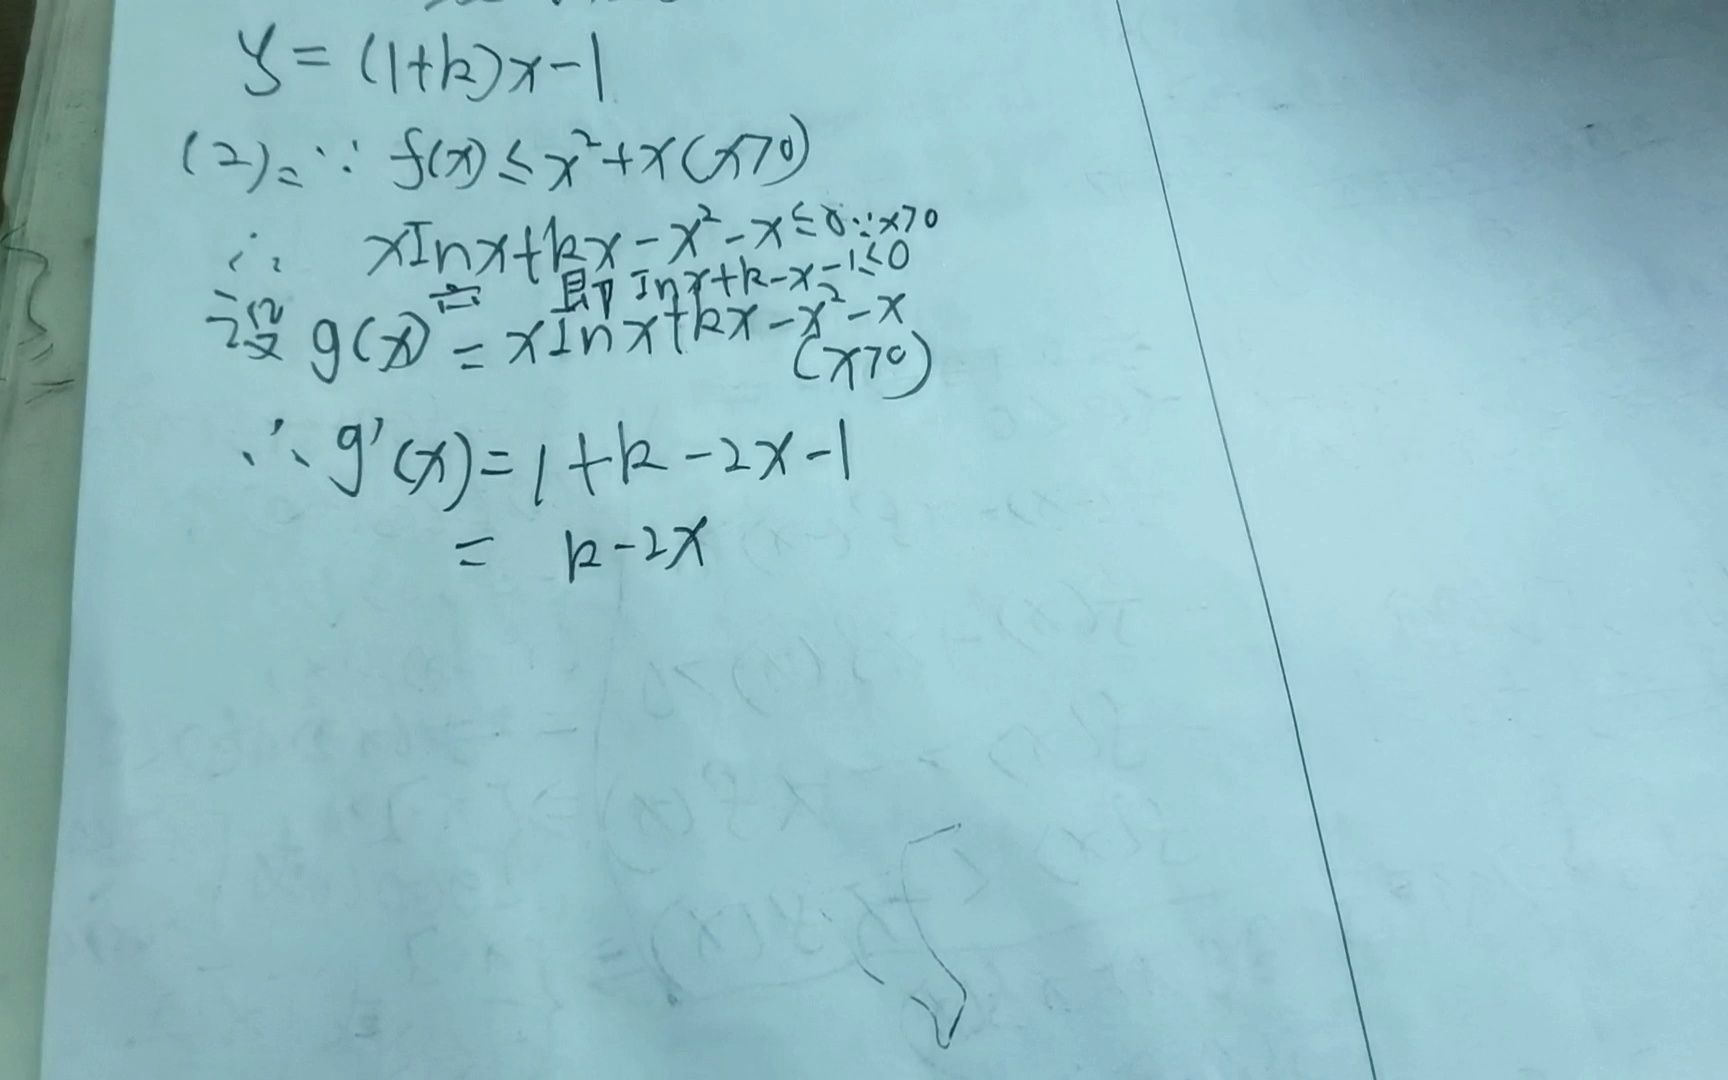 y = (1+k)x-1
(2): ∵ f(x) ≤ x²+x (x>0)
∴ xlnx+kx-x²-x≤0 ∵x>0
即 lnx+k-x-1≤0
设 g(x) = xlnx+kx-x²-x
(x>0)
∴ g'(x) = 1+k-2x-1
= k-2x